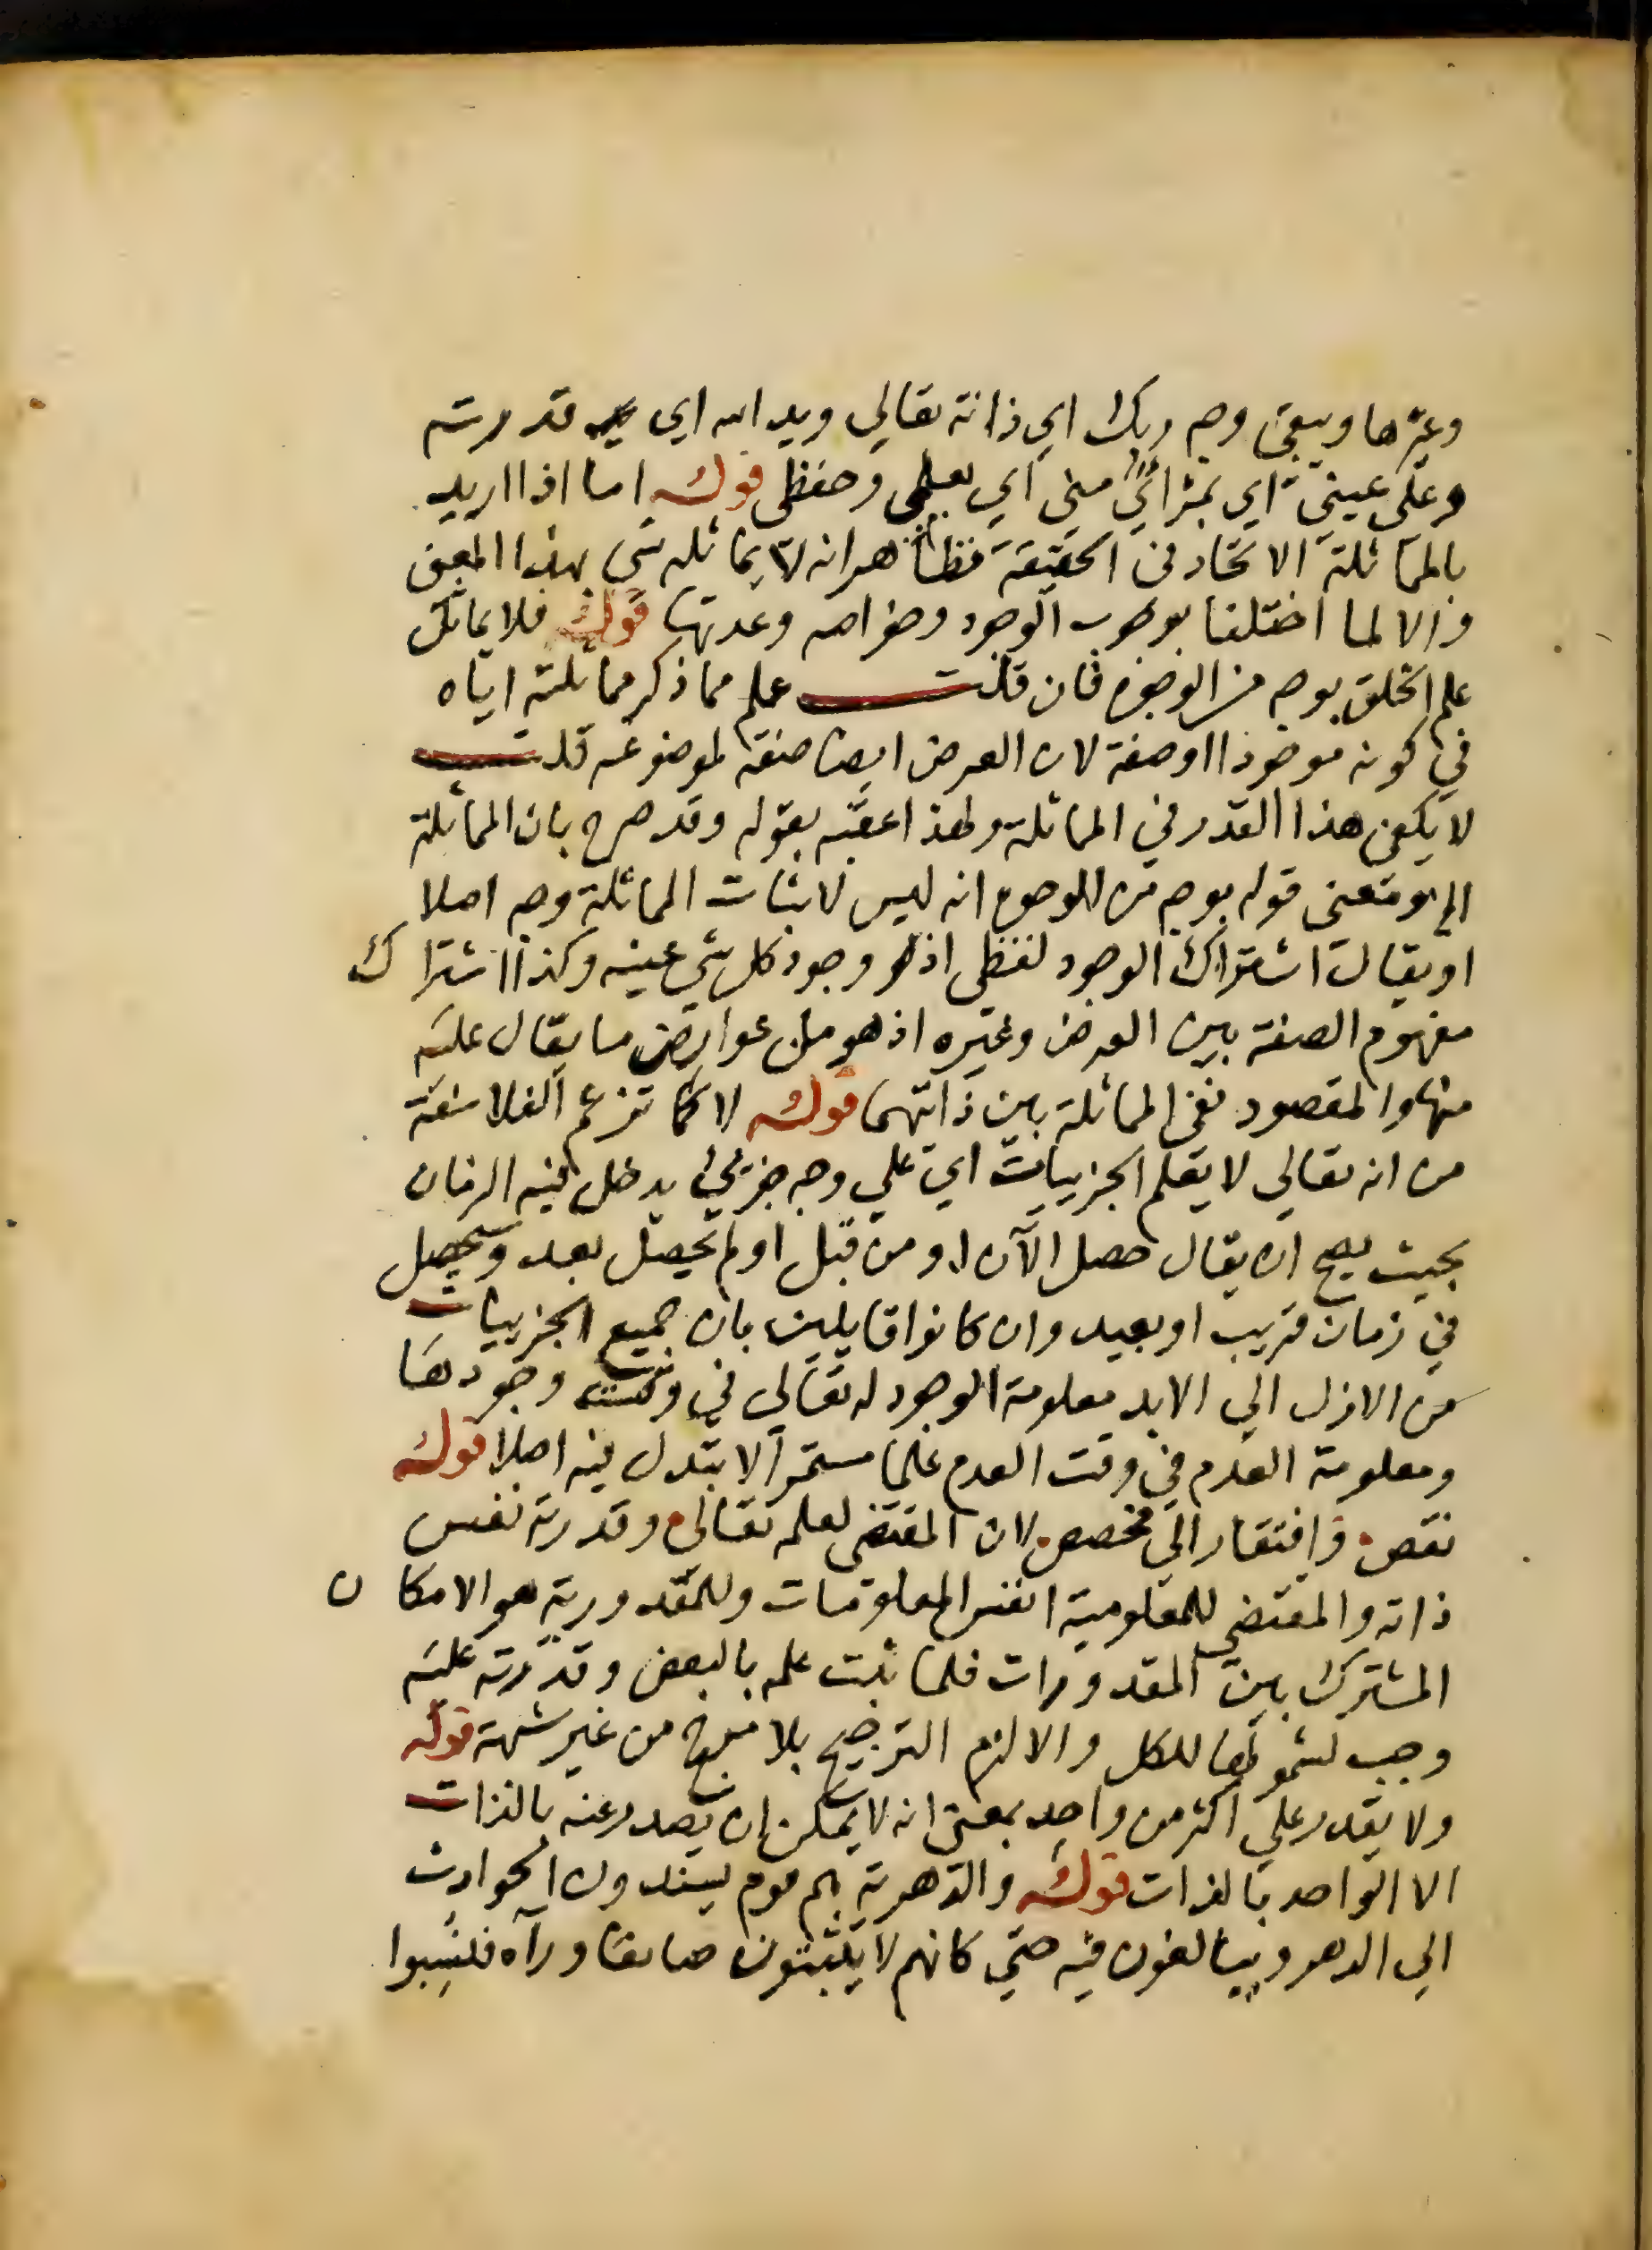 وغيرها ويبقى وجه ربك اي ذاته تعالي ويد الله اي قدرته
وعلي عيني اي بمرائي مني اي بعلمي وحفظي قوله اما اذا اريد
بالمماثلة الاتحاد في الحقيقة فظاهر انه لا يماثله شي بهذا المعنى
والا لما اختلفا بوجوب الوجود وخواصه وعدمها قوله فلا يماثل
علم الخلق بوجه من الوجوه فان قلت علم مما ذكر مماثلته اياه
في كونه موجودا او صفة لان العرض ايضا صفة لموضوعه قلت
لا يكفي هذا القدر في المماثلة ولهذا عقبه بقوله وقد صرح بان المماثلة
الخ ومعنى قوله بوجه من الوجوه انه ليس لاثبات المماثلة وجه اصلا
او يقال اشتراك الوجود لفظي اذ وجود كل شي عينه وكذا اشتراك
مفهوم الصفة بين العرض وغيره اذ هو من عوارض ما يقال عليه
منها والمقصود نفي المماثلة بين ذاتهما قوله لا كما تزعم الفلاسفة
من انه تعالي لا يعلم الجزييات اي علي وجه جزئي يدخل فيه الزمان
بحيث يصح ان يقال حصل الآن او من قبل او لم يحصل بعد وسيحصل
في زمان قريب او بعيد وان كانوا قايلين بان جميع الجزييات
من الازل الي الابد معلومة الوجود له تعالي في وقت وجودها
ومعلومة العدم في وقت العدم علما مستمرا لا يتبدل فيه اصلا قوله
نقص وافتقار الي مخصص لان المقتضي لعلمه تعالي وقدرته نفس
ذاته والمقتضي للمعلومية انفس المعلومات وللمقدورية هو الامكان
المشترك بين المقدورات فلما ثبت علمه بالبعض وقدرته عليه
وجب شمولهما للكل والا لزم الترجيح بلا مرجح من غير شبهة قوله
ولا يقدر علي اكثر من واحد بمعنى انه لا يمكن ان يصدر عنه بالذات
الا الواحد بالذات قوله والدهرية هم قوم يسندون الحوادث
الي الدهر ويبالغون فيه حتي كانهم لا يثبتون صانعا ورآه فنسبوا